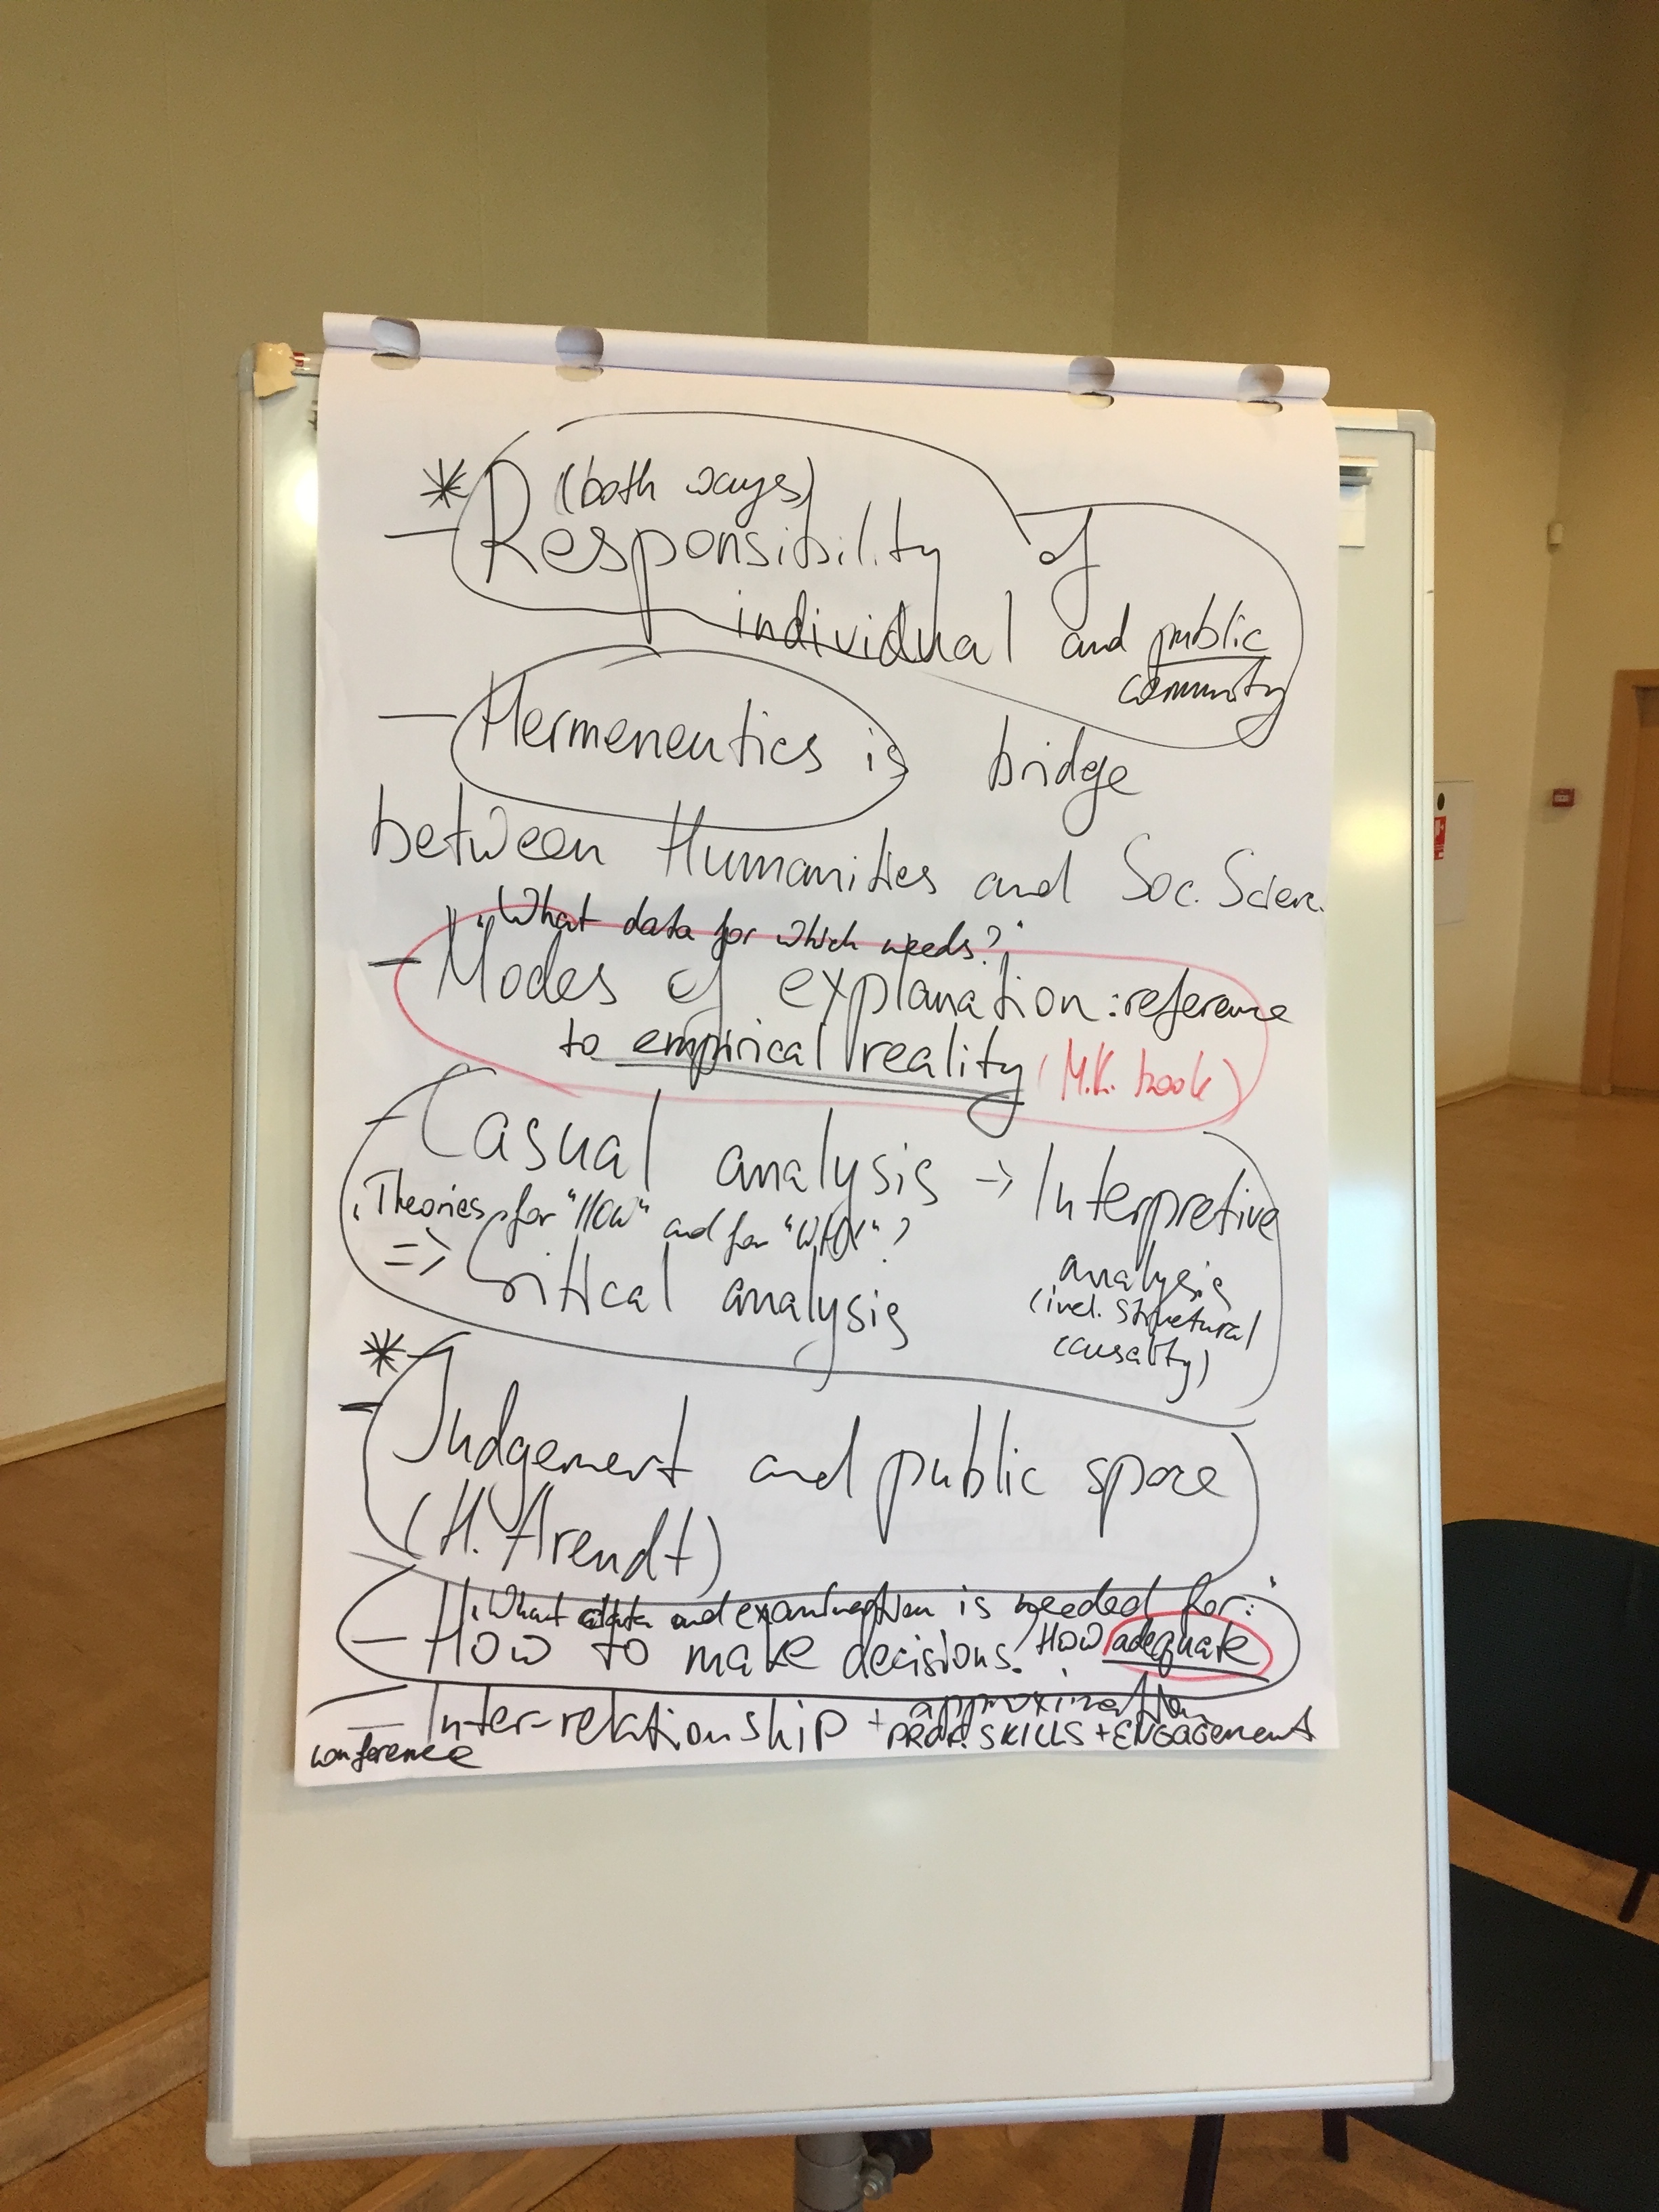 * (both ways)
– Responsibility of
individual and public
community
– Hermeneutics is bridge
between Humanities and Soc. Scienc.
"What data for which needs?"
– Modes of explanation: reference
to empirical reality (M.K. book)
– Casual analysis -> Interpretive
analysis
(incl. structural
causality)
"Theories for "HOW" and for "WHY"?
=> Critical analysis
*
– Judgement and public space
(H. Arendt)
"What data and examination is needed for:"
– How to make decisions? HOW adequate
approximation
– Inter-relationship + PROF. SKILLS + ENGAGEMENT
conference